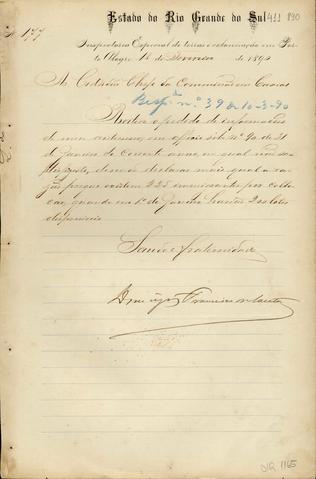 Estado do Rio Grande do Sul
411 890
Nº 177
Inspectoria Especial de terras e colonisação em Por-
to Alegre, 18 de Fevereiro de 1890
Ao Cidadão Chefe da Commissão em Caxias
Resp. n.º 39 a 10-3-90
Reitero o pedido de informações
de meu antecessor em officio sob nº 20 de 21
de Janeiro do corrente anno, ao qual não
declarar mais qual a ra-
zão porque existem 225 immigrantes por collo-
car, quando em 1º de Janeiro haviam 200 lotes
disponiveis
Saude e fraternidade
Francisco
DIR 1165